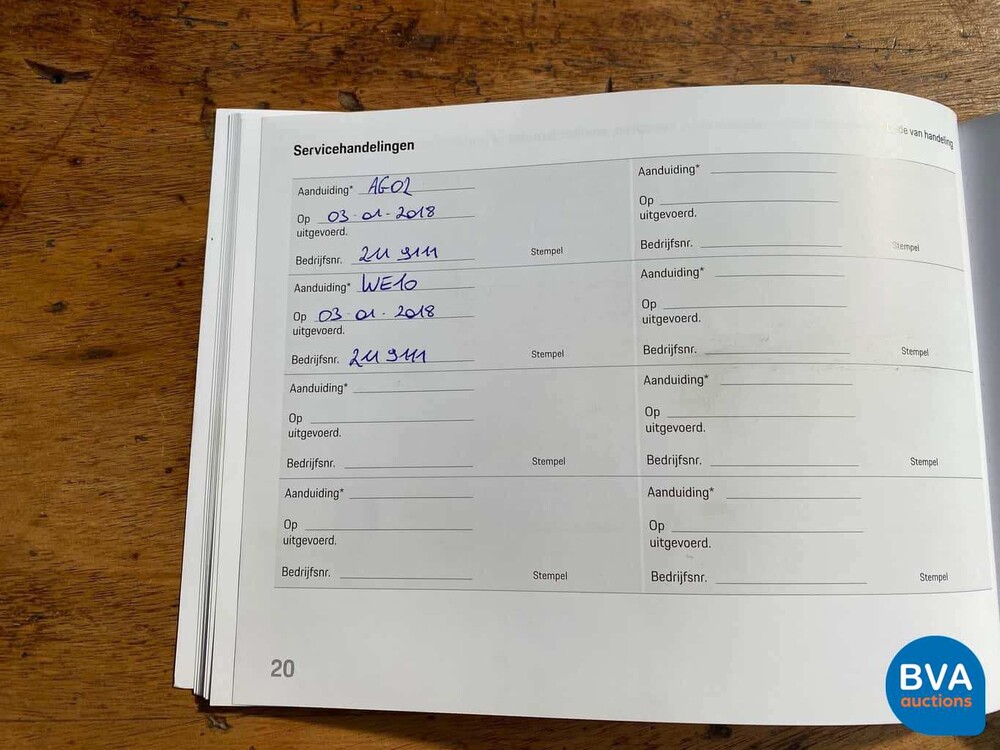 Servicehandelingen
de van handeling
Aanduiding* AG02
Op 03-01-2018
uitgevoerd.
Bedrijfsnr. 211 9111 Stempel
Aanduiding* WE10
Op 03-01-2018
uitgevoerd.
Bedrijfsnr. 211 9111 Stempel
Aanduiding*
Op
uitgevoerd.
Bedrijfsnr. Stempel
Aanduiding*
Op
uitgevoerd.
Bedrijfsnr. Stempel
Aanduiding*
Op
uitgevoerd.
Bedrijfsnr. Stempel
Aanduiding*
Op
uitgevoerd.
Bedrijfsnr. Stempel
Aanduiding*
Op
uitgevoerd.
Bedrijfsnr. Stempel
Aanduiding*
Op
uitgevoerd.
Bedrijfsnr. Stempel
20
BVA
auctions